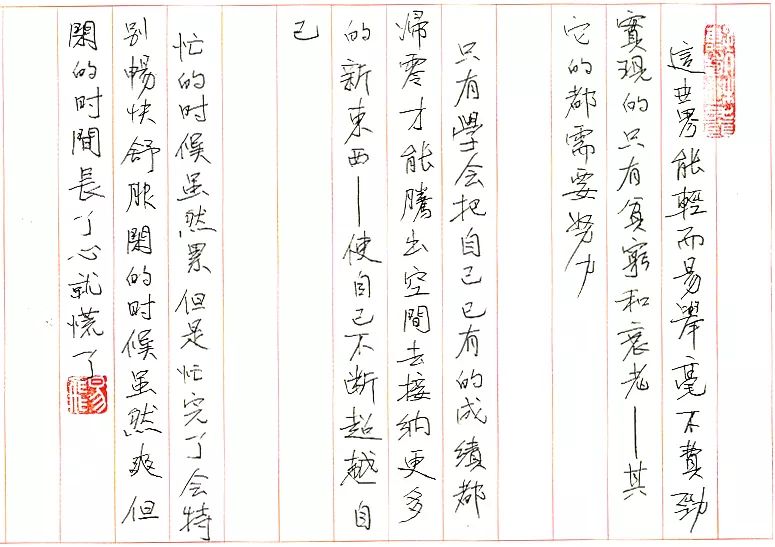 這世界能輕而易舉毫不費勁
實現的只有貧窮和衰老——其
它的都需要努力
只有學会把自己已有的成績都
帰零才能騰出空間去接納更多
的新東西——使自己不断超越自
己
忙的时候虽然累但是忙完了会特
别暢快舒服閑的时候虽然爽但
閑的时間長了心就慌了